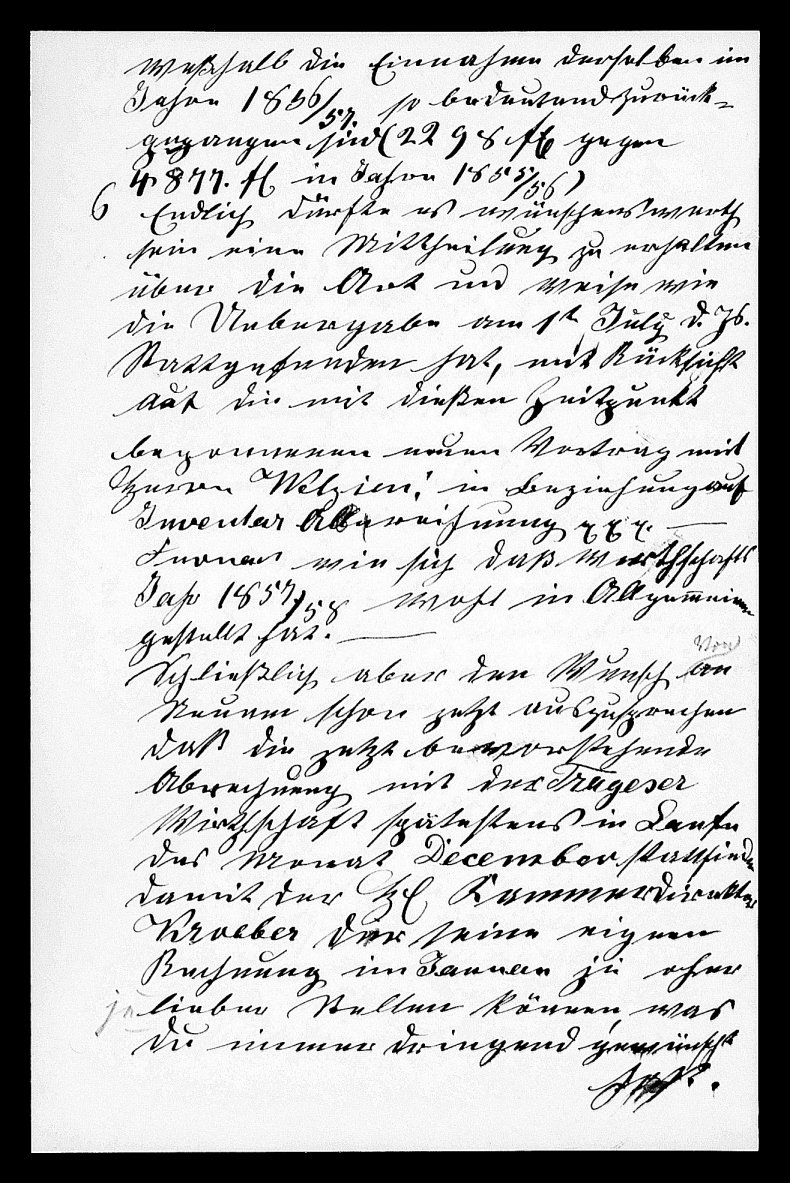 weßhalb die Einnahme derselben im
Jahre 1856/57. so bedeutend zurück-
gegangen sind (2298 fl gegen
4877. fl im Jahre 1855/56)
6 Endlich dürfte es wünschenswerth
sein eine Mittheilung zu erhalten
über die Art und weise wie
die Uebergabe am 1t July d. Js.
Stattgefunden hat, mit Rücksicht
auf die mit dießen Zeitpunkt
begonnenen neuen Vertrag mit
Herrn Welzien! in Beziehung auf
Inventar
Ferner wie sich daß Wirthschafts
Jahr 1857/58 wohl im Allgemeinen
gestellt hat.
Schließlich aber den Wunsch von
Neuem schon jetzt auszusprechen
daß die jetzt bevorstehende
Abrechnung mit der Trageser
Wirthschaft spätestens im Laufe
des Monat December stattfinde
damit der H Kammerdirektor
Kroeber der seine eigene
Rechnung im Januar je eher
je lieber Stellen können, was
Du immer dringend gewünscht
hast.